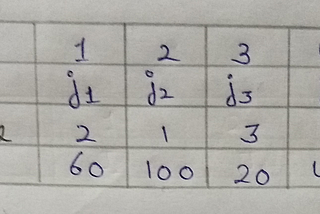 1 2 3
j1 j2 j3
2 1 3
60 100 20